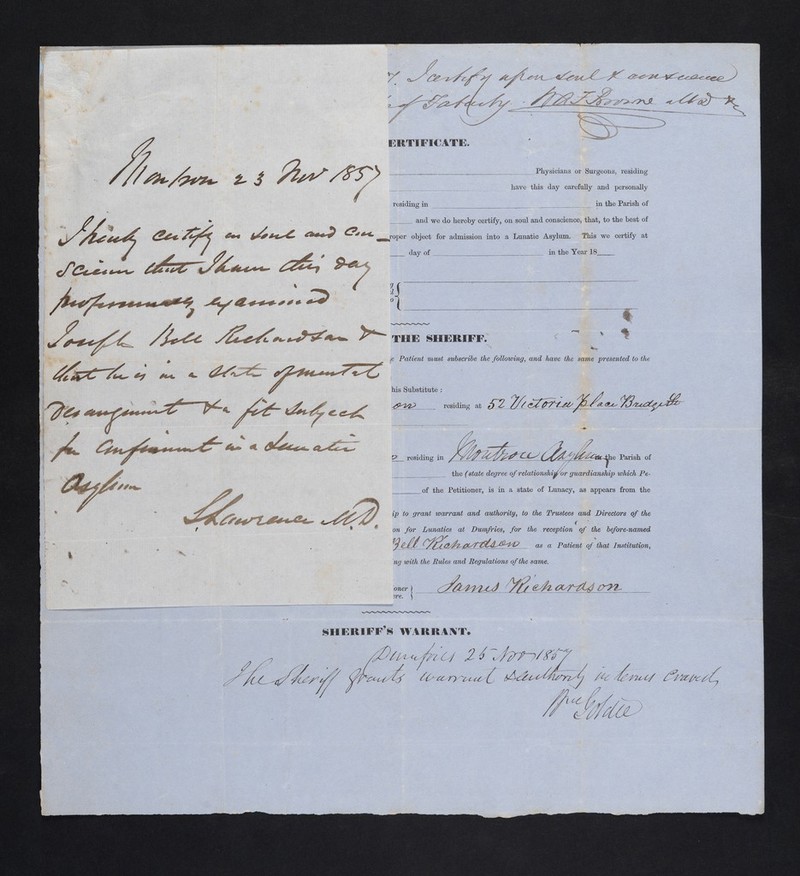 I certify upon soul & conscience
W A F Browne M D &c
Montrose 23 Nov 1857
I hereby certify on soul and con-
science that I have this day
professionally examined
Joseph Bell Richardson &
that he is in a state of mental
derangement & a fit subject
for confinement in a Lunatic
Asylum
S Lawrence M.D.
ERTIFICATE.
Physicians or Surgeons, residing
have this day carefully and personally
residing in in the Parish of
and we do hereby certify, on soul and conscience, that, to the best of
roper object for admission into a Lunatic Asylum. This we certify at
day of in the Year 18
THE SHERIFF.
e Patient must subscribe the following, and have the same presented to the
his Substitute :
on residing at 52 Victoria place Bridgeth
residing in Montrose Asylum the Parish of
the (state degree of relationship or guardianship which Pe-
of the Petitioner, is in a state of Lunacy, as appears from the
ip to grant warrant and authority, to the Trustees and Directors of the
on for Lunatics at Dumfries, for the reception of the before-named
Bell Richardson as a Patient of that Institution,
ng with the Rules and Regulations of the same.
oner
ere. James Richardson
SHERIFF'S WARRANT.
Dumfries 25 Nov 1857
The Sheriff grants warrant & authority in terms craved,
Wm Goldie